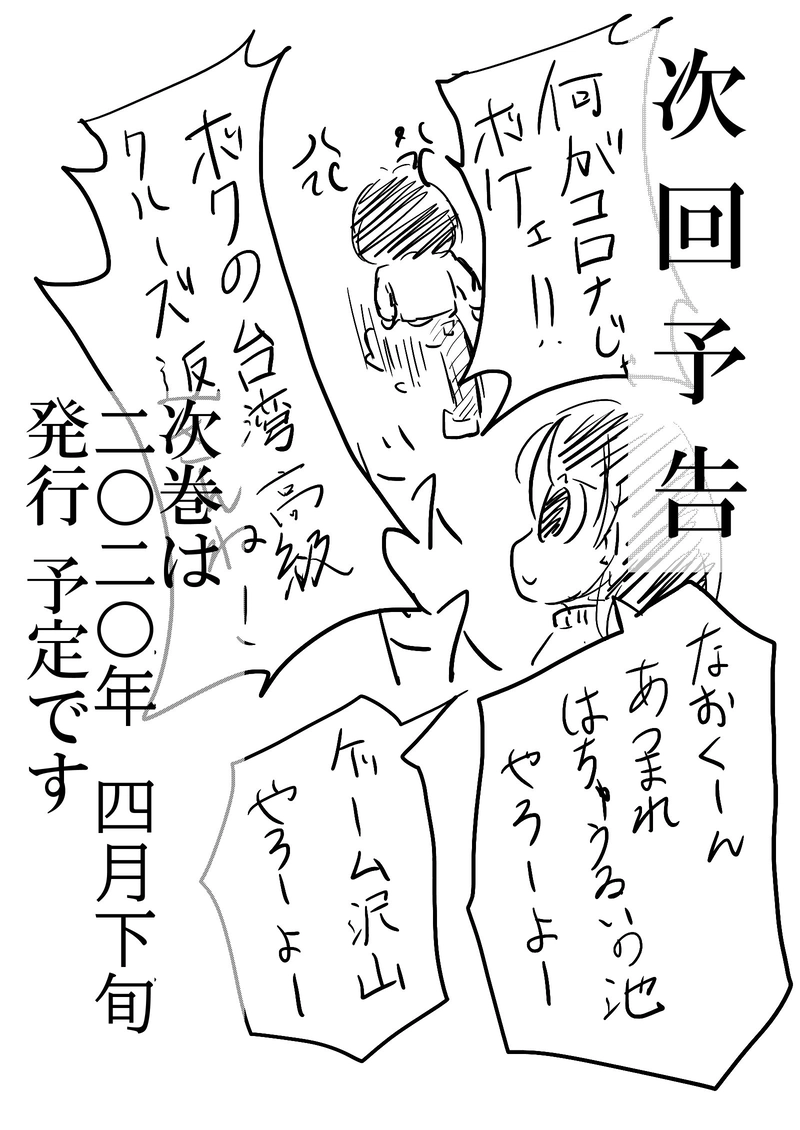 次回予告
何がコロナじゃ
ボケェ!!
ボクの台湾高級
クルーズ返せよねー
なおくーん
あつまれ
はちゅうるいの池
やろーよー
ゲーム沢山
やろーよー
次巻は
二〇二〇年 四月下旬
発行 予定です